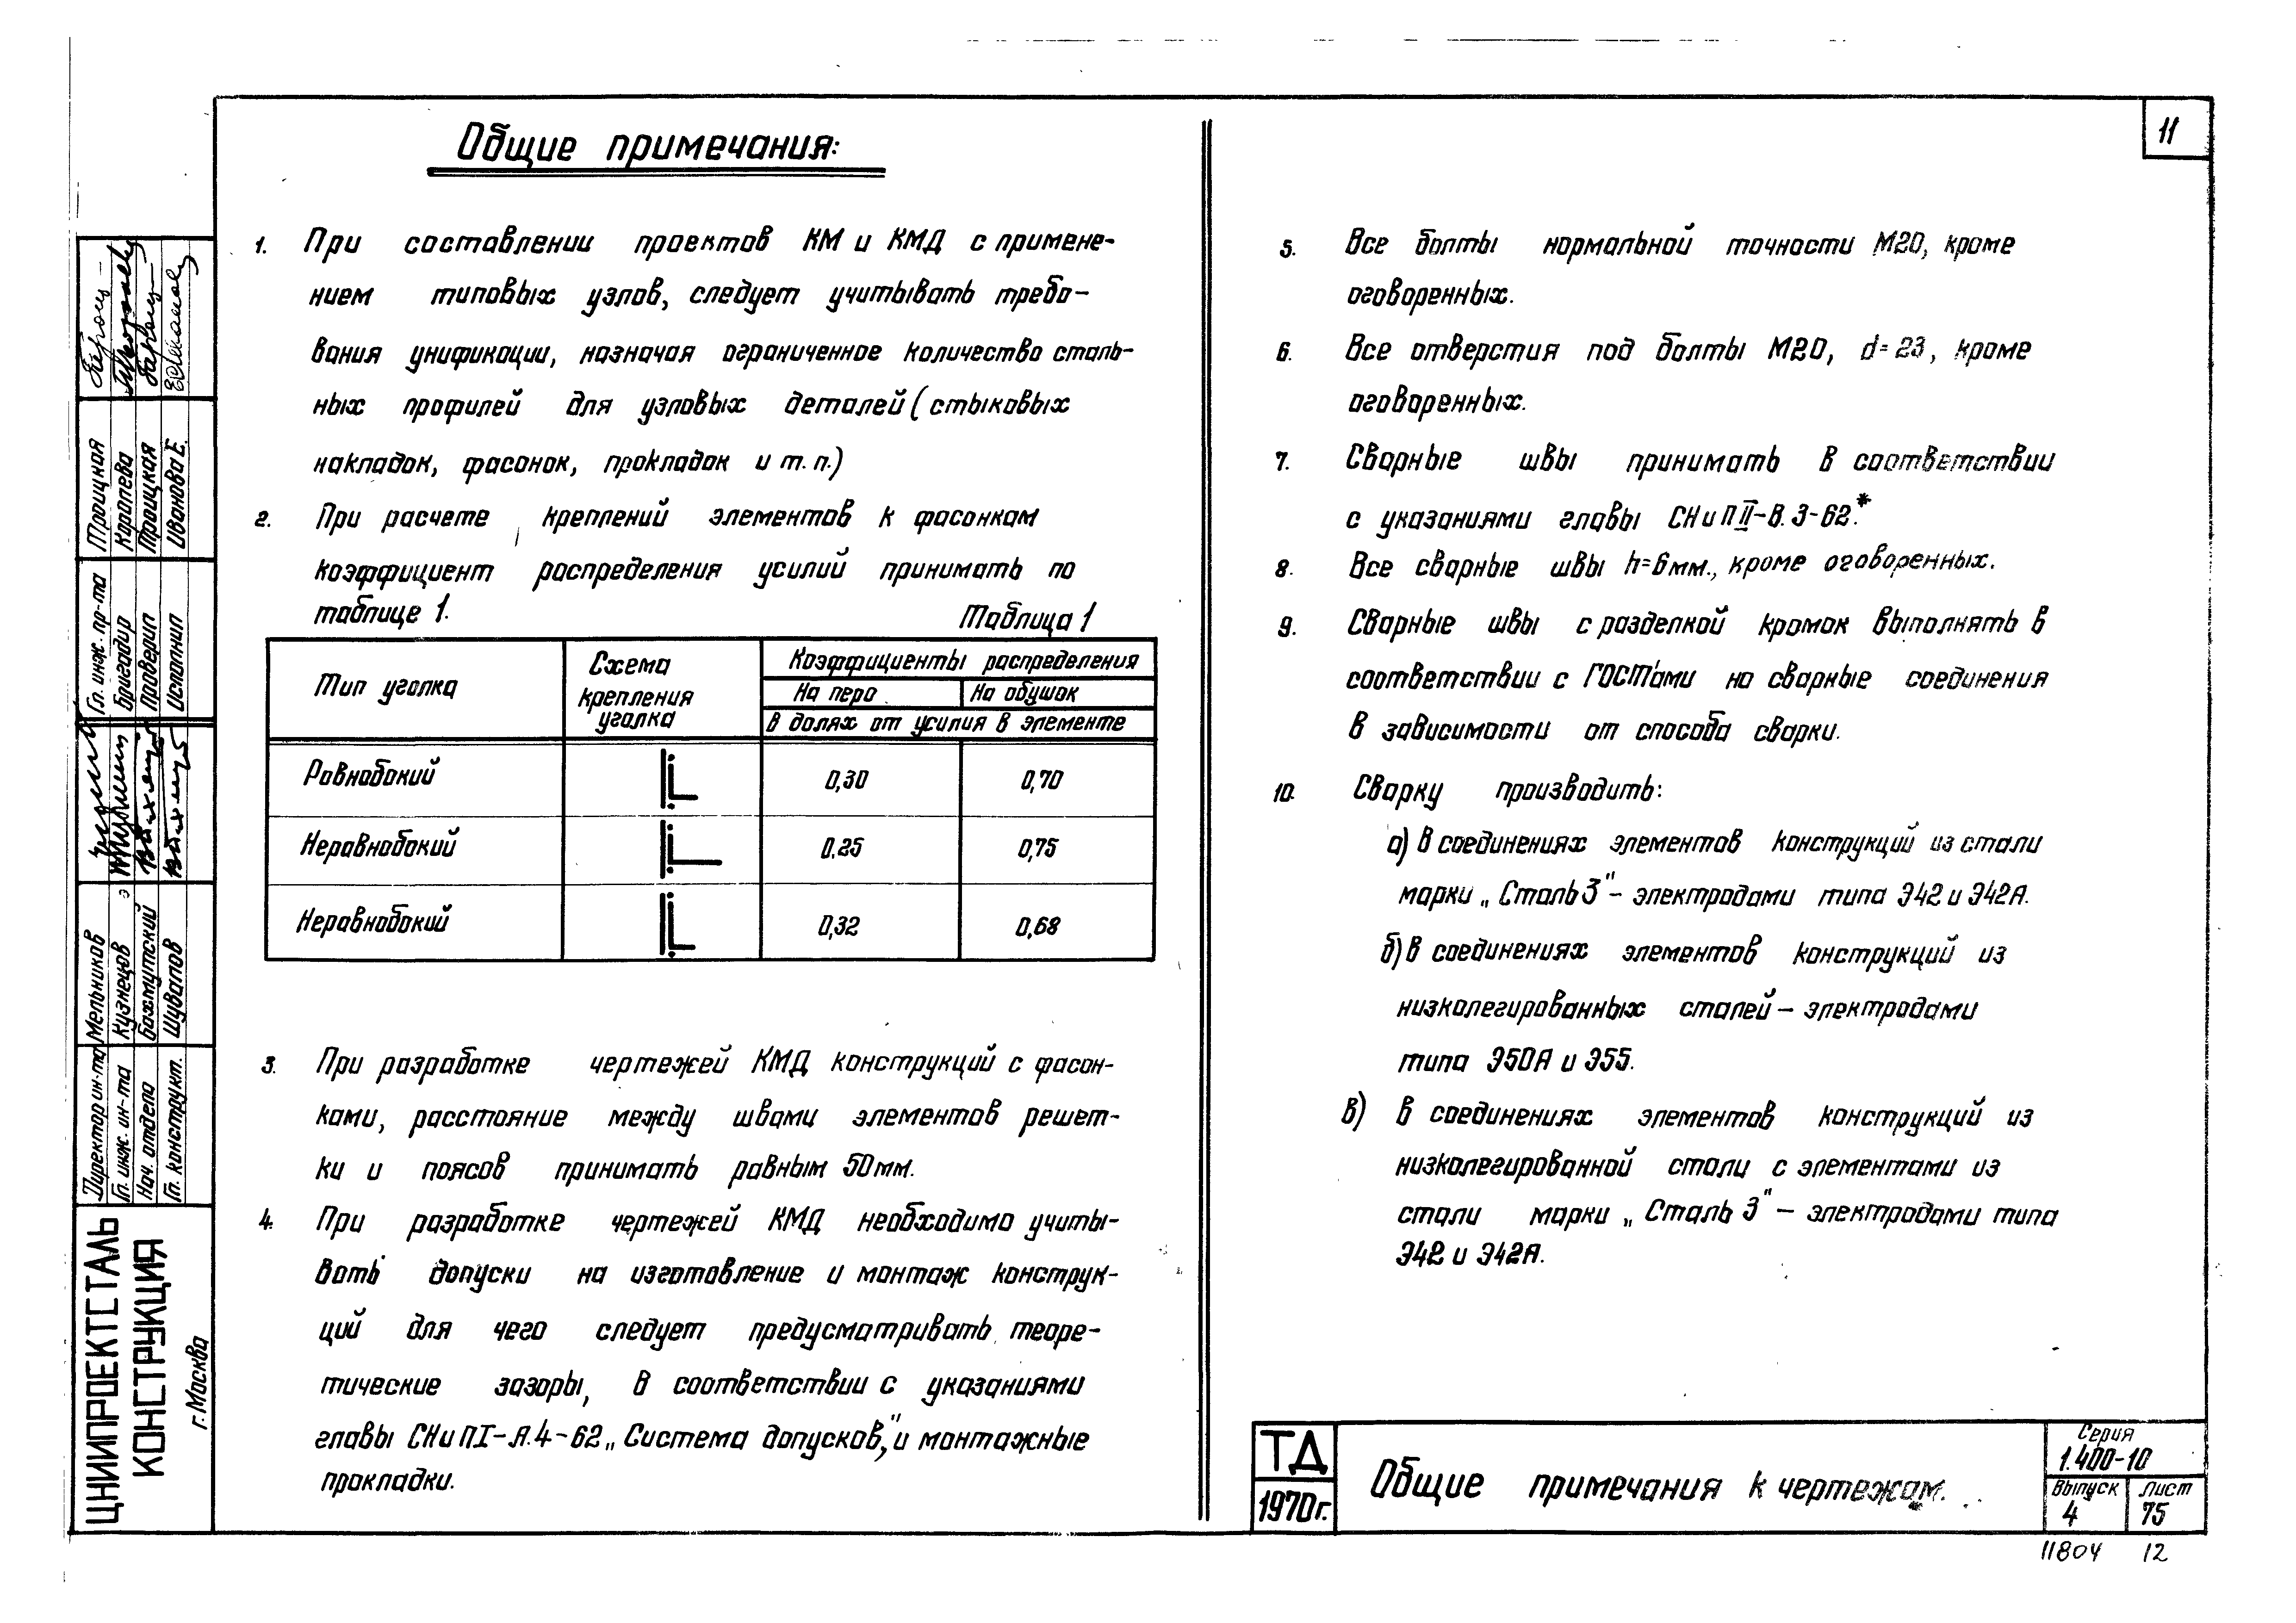 11
Общие примечания:
1. При составлении проектов КМ и КМД с примене-
нием типовых узлов, следует учитывать требо-
вания унификации, назначая ограниченное количество сталь-
ных профилей для узловых деталей (стыковых
накладок, фасонок, прокладок и т.п.)
2. При расчете креплений элементов к фасонкам
коэффициент распределения усилий принимать по
таблице 1.
Таблица 1
Тип уголка
Схема
крепления
уголка
Коэффициенты распределения
На перо На обушок
В долях от усилия в элементе
Равнобокий 0,30 0,70
Неравнобокий 0.25 0,75
Неравнобокий 0,32 0,68
3. При разработке чертежей КМД конструкций с фасон-
ками, расстояние между швами элементов решет-
ки и поясов принимать равным 50мм.
4. При разработке чертежей КМД необходимо учиты-
вать допуски на изготовление и монтаж конструк-
ций для чего следует предусматривать теоре-
тические зазоры, в соответствии с указаниями
главы СНиПI-А.4-62 „Система допусков," и монтажные
прокладки.
5. Все болты нормальной точности М20, кроме
оговоренных.
6. Все отверстия под болты М20, d=23, кроме
оговоренных.
7. Сварные швы принимать в соответствии
с указаниями главы СНиПII-В.3-62.*
8. Все сварные швы h=6мм., кроме оговоренных.
9. Сварные швы с разделкой кромок выполнять в
соответствии с ГОСТ'ами на сварные соединения
в зависимости от способа сварки.
10. Сварку производить:
а) в соединениях элементов конструкций из стали
марки „Сталь 3" - электродами типа Э42 и Э42А.
б) в соединениях элементов конструкций из
низколегированных сталей - электродами
типа Э50А и Э55.
в) в соединениях элементов конструкций из
низколегированной стали с элементами из
стали марки „Сталь 3" - электродами типа
Э42 и Э42А.
Гл. инж. пр-та Троицкая
Бригадир Королева
Проверил Троицкая
Исполнил Иванова Е.
Директор ин-та Мельников
Гл. инж. ин-та Кузнецов
Нач. отдела Бахмутский
Гл. конструкт. Шувалов
ЦНИИПРОЕКТСТАЛЬ
КОНСТРУКЦИЯ
г. Москва
ТД
1970г.
Общие примечания к чертежам.
Серия
1.400-10
Выпуск Лист
4 75
11804 12